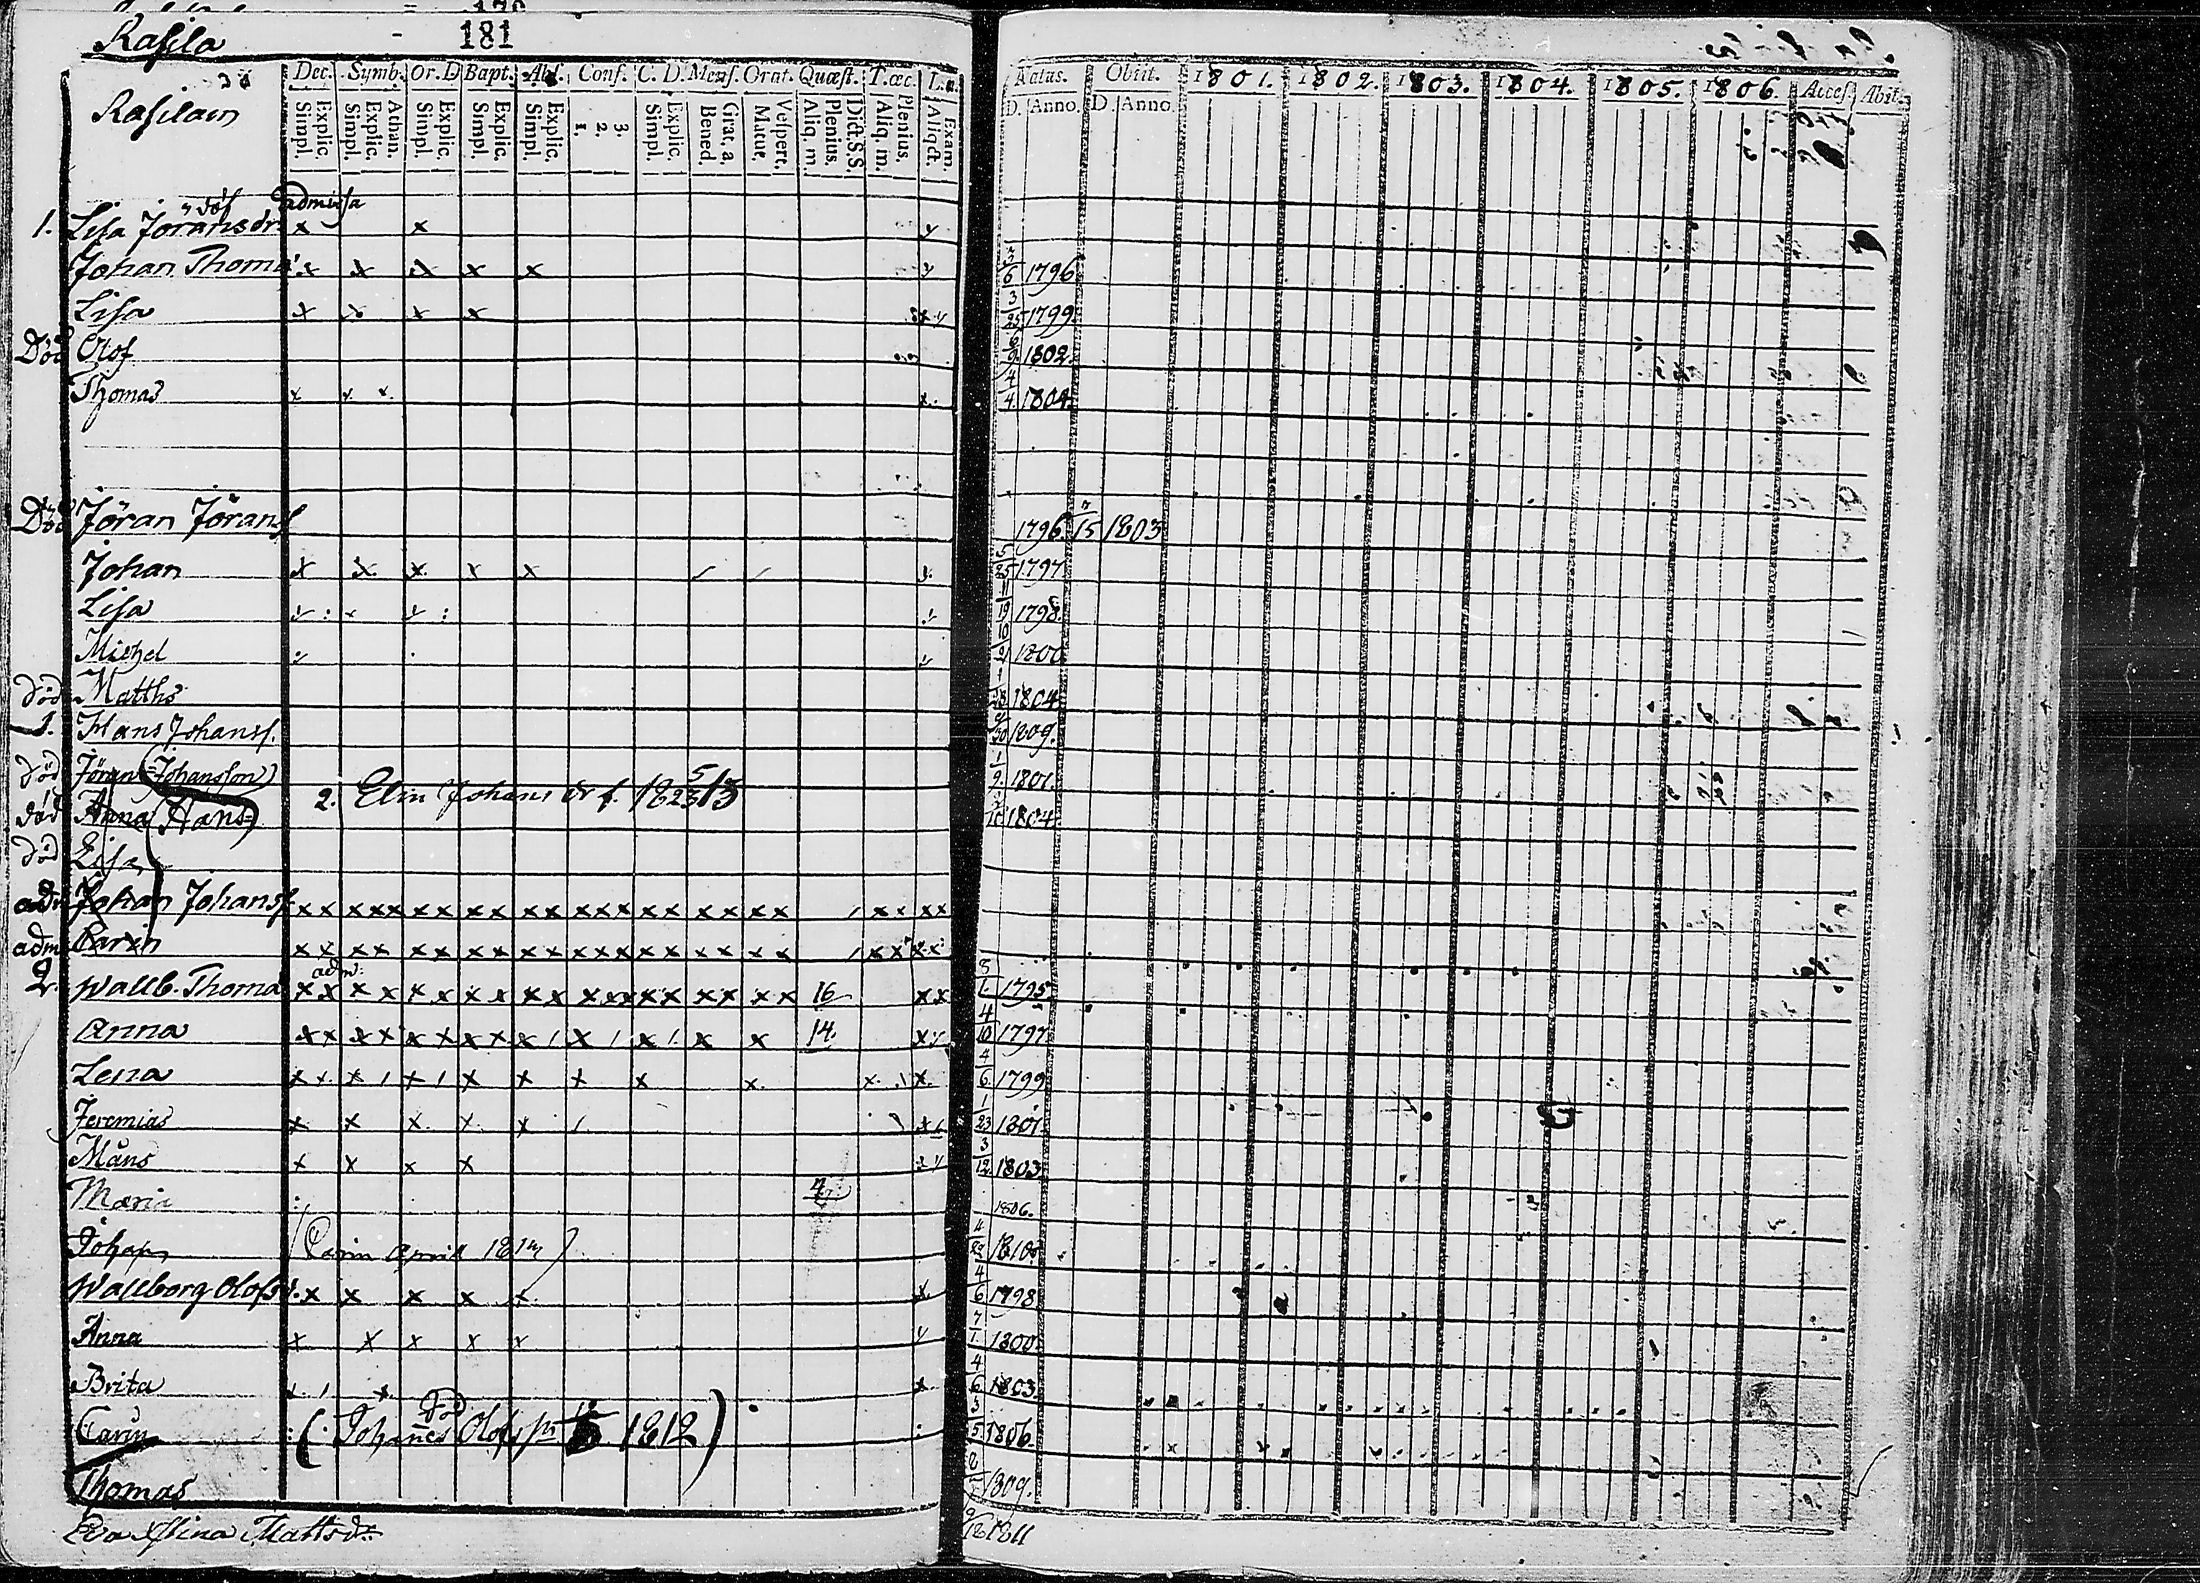 181
Rasila
Rasilain
Dec. Symb. Or. D Bapt. Abs. Conf. C. D. Mens. Orat. Quæst. T. œc.
Simpl. Explic. Simpl. Explic. Athan. Simpl. Explic. Simpl. Explic. Simpl. Explic. 1. 2. 3. Simpl. Explic. Bened. Grat. a. Matut. Vespert. Aliq. m. Plenius. Dict. S. S. Aliq. m. Plenius. Exam.
Natus. Obiit. 1801. 1802. 1803. 1804. 1805. 1806. Acces. Abit.
D. Anno. D. Anno.
död admissa
1. Lisa Joransdr
Johan Thoms 3/6 1796
Lisa 3/25 1799
Död Olof 6/9 1802.
Thomas 4/4 1804
Död Jöran Jöranss 1796 7/15 1803
Johan 5/25 1797
Lisa 11/19 1798.
Michel 10 1800
död Matths 1804
1. Hans Johanss. 1809.
död Jöran (Johansson) 1/9 1801.
2. Elin Johans dr f. 1823 5/13
död Anna (Hans) 1804
död Lisa
adm Johan Johanss
adm Carin
adm:
2. Wallb. Thoma 16 1795
Anna 14. 4/10 1797
Lena 4/6 1799
Jeremias 1/23 1801.
Måns 3/12 1803
Maria 1806.
Johan (Carin April 1814) 1810.
Wallborg Olofsd. 4/6 1798
Anna 7/1 1800
Brita 4/6 1803.
död
Carin (Johannes Olofs sn 1812) 3/5 1806.
Thomas 1809.
Eva Stina Mattsdr 1811